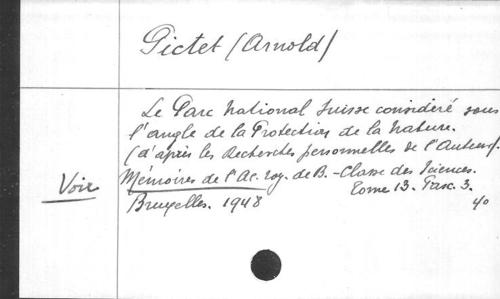 Pictet (Arnold)
Le Parc National Suisse considéré sous
l'angle de la Protection de la Nature.
(d'après les Recherches personnelles de l'Auteur).
Voir Mémoires de l'Ac. roy. de B. - Classe des Sciences.
Tome 13. Fasc. 3.
Bruxelles. 1948
4o